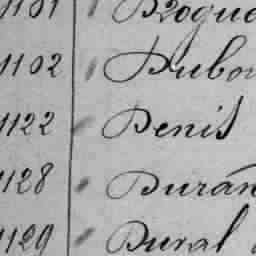 1101 Droque
1102 Dubou
1122 Denis
1128 Duran
1129 Dural